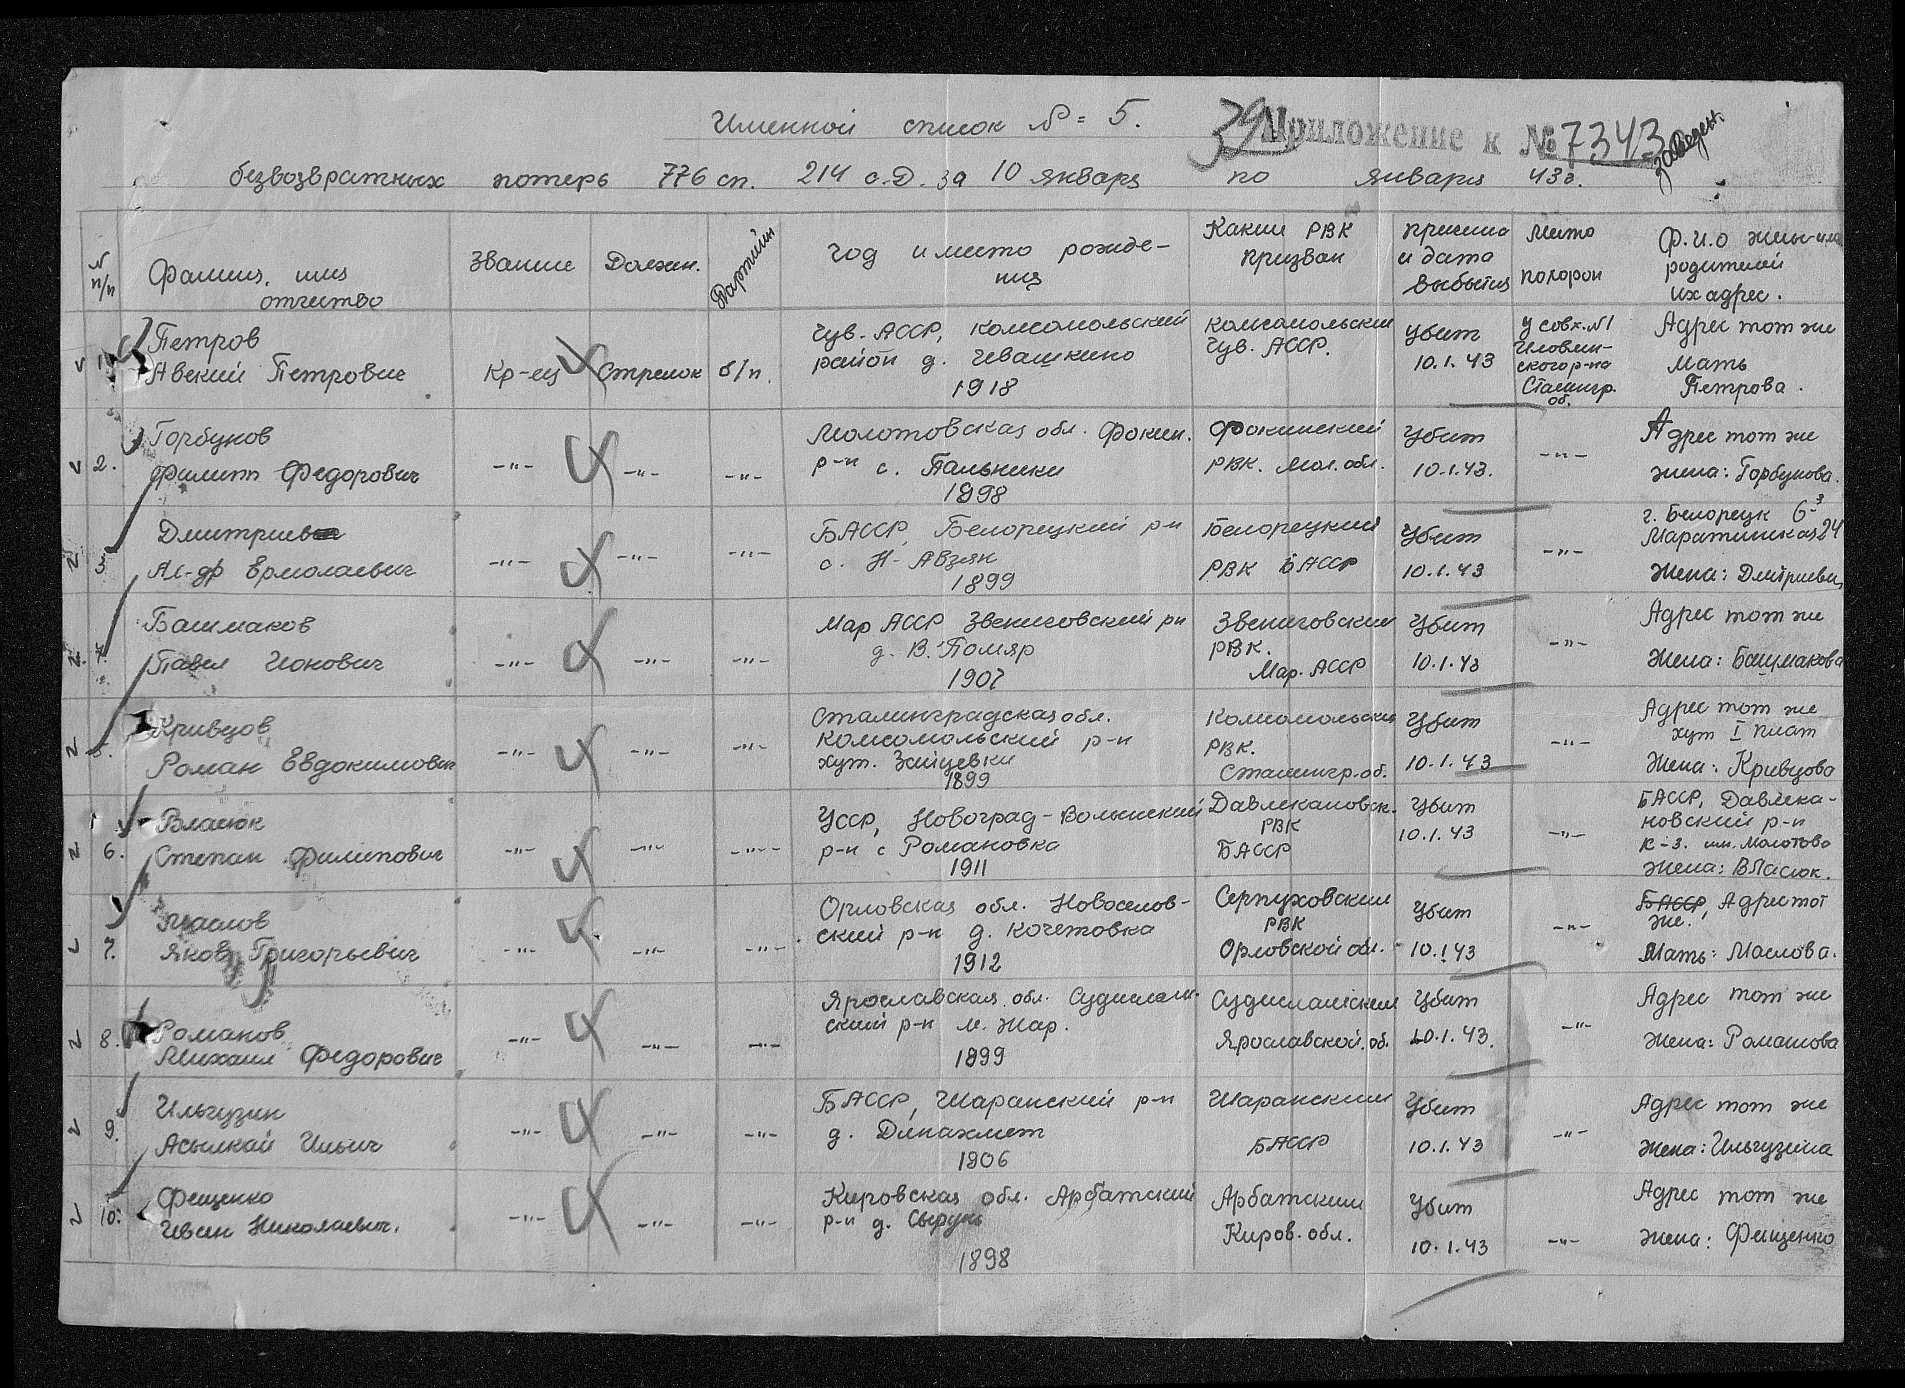 Именной список №= 5.
39 Приложение к № 7343
безвозвратных потерь 776 сп. 214 с.д. за 10 января по января 43г.
№ п/п
Фамил. имя
отчество
Звание
Должн.
Партийн
Год и место рожде-
ния
Каким РВК
призван
причина
и дата
выбытия
Место
похорон
Ф.И.О жены или
родителей
их адрес.
1
Петров
Авский Петрович
Кр-ец
Стрелок
б/п.
Чув. АССР, Комсомольский
район д. Чевашкино
1918
Комсомольский
Чув. АССР.
Убит
10.1.43
у совх. №1
Иловлин-
ского р-на
Сталингр.
об.
Адрес тот же
Мать
Петрова.
2.
Горбунов
Филипп Федорович
-"-
-"-
-"-
Молотовская обл. Фокин.
р-н с. Пальники
1898
Фокинский
РВК. Мол. обл.
Убит
10.1.43.
-"-
Адрес тот же
жена: Горбунова.
3.
Дмитриев
Ал-др Ермолаевич
-"-
-"-
-"-
БАССР, Белорецкий р-н
с. Н-Авзян
1899
Белорецкий
РВК БАССР
Убит
10.1.43
-"-
г. Белорецк 6-3
Жена: Дмитриева
4.
Башмаков
Павел Ионович
-"-
-"-
-"-
Мар АССР Звениговский рн
д. В. Помяр
1907
Звениговский
РВК.
Мар. АССР
Убит
10.1.43
-"-
Адрес тот же
Жена: Башмакова
5.
Кривцов
Роман Евдокимович
-"-
-"-
-"-
Сталинградская обл.
Комсомольский р-н
хут. Зайцевки
1899
Комсомольский
РВК.
Сталингр. об.
Убит
10.1.43
-"-
Адрес тот же
хут I
Жена: Кривцова
6.
Власюк
Степан Филипович
-"-
-"-
-"-
УССР, Новоград-Волынский
р-н с Романовка
1911
Давлекановск.
РВК
БАССР
Убит
10.1.43
-"-
БАССР, Давлека-
новский р-н
к-з. им. Молотова
Жена: Власюк.
7.
Маслов
Яков Григорьевич
-"-
-"-
-"-
Орловская обл. Новоселов-
ский р-н д. Кочетовка
1912
Серпуховский
РВК
Орловской обл.
Убит
10.1.43
-"-
БАССР, Адрес тот
же.
Мать: Маслова.
8.
Романов
Михаил Федорович
-"-
-"-
-"-
Ярославская обл. Судислав-
ский р-н м. Жар.
1899
Судиславский
Ярославской. об.
Убит
10.1.43.
-"-
Адрес тот же
Жена: Романова
9.
Ильгузин
Асылкай Ильич
-"-
-"-
-"-
БАССР, Шаранский р-н
д. Дюпахмет
1906
Шаранский
БАССР
Убит
10.1.43
-"-
Адрес тот же
Жена: Ильгузина
10.
Фещенко
Иван Николаевич.
-"-
-"-
-"-
Кировская обл. Арбатский
р-н д.
1898
Арбатский
Киров. обл.
Убит
10.1.43
-"-
Адрес тот же
Жена: Фещенко